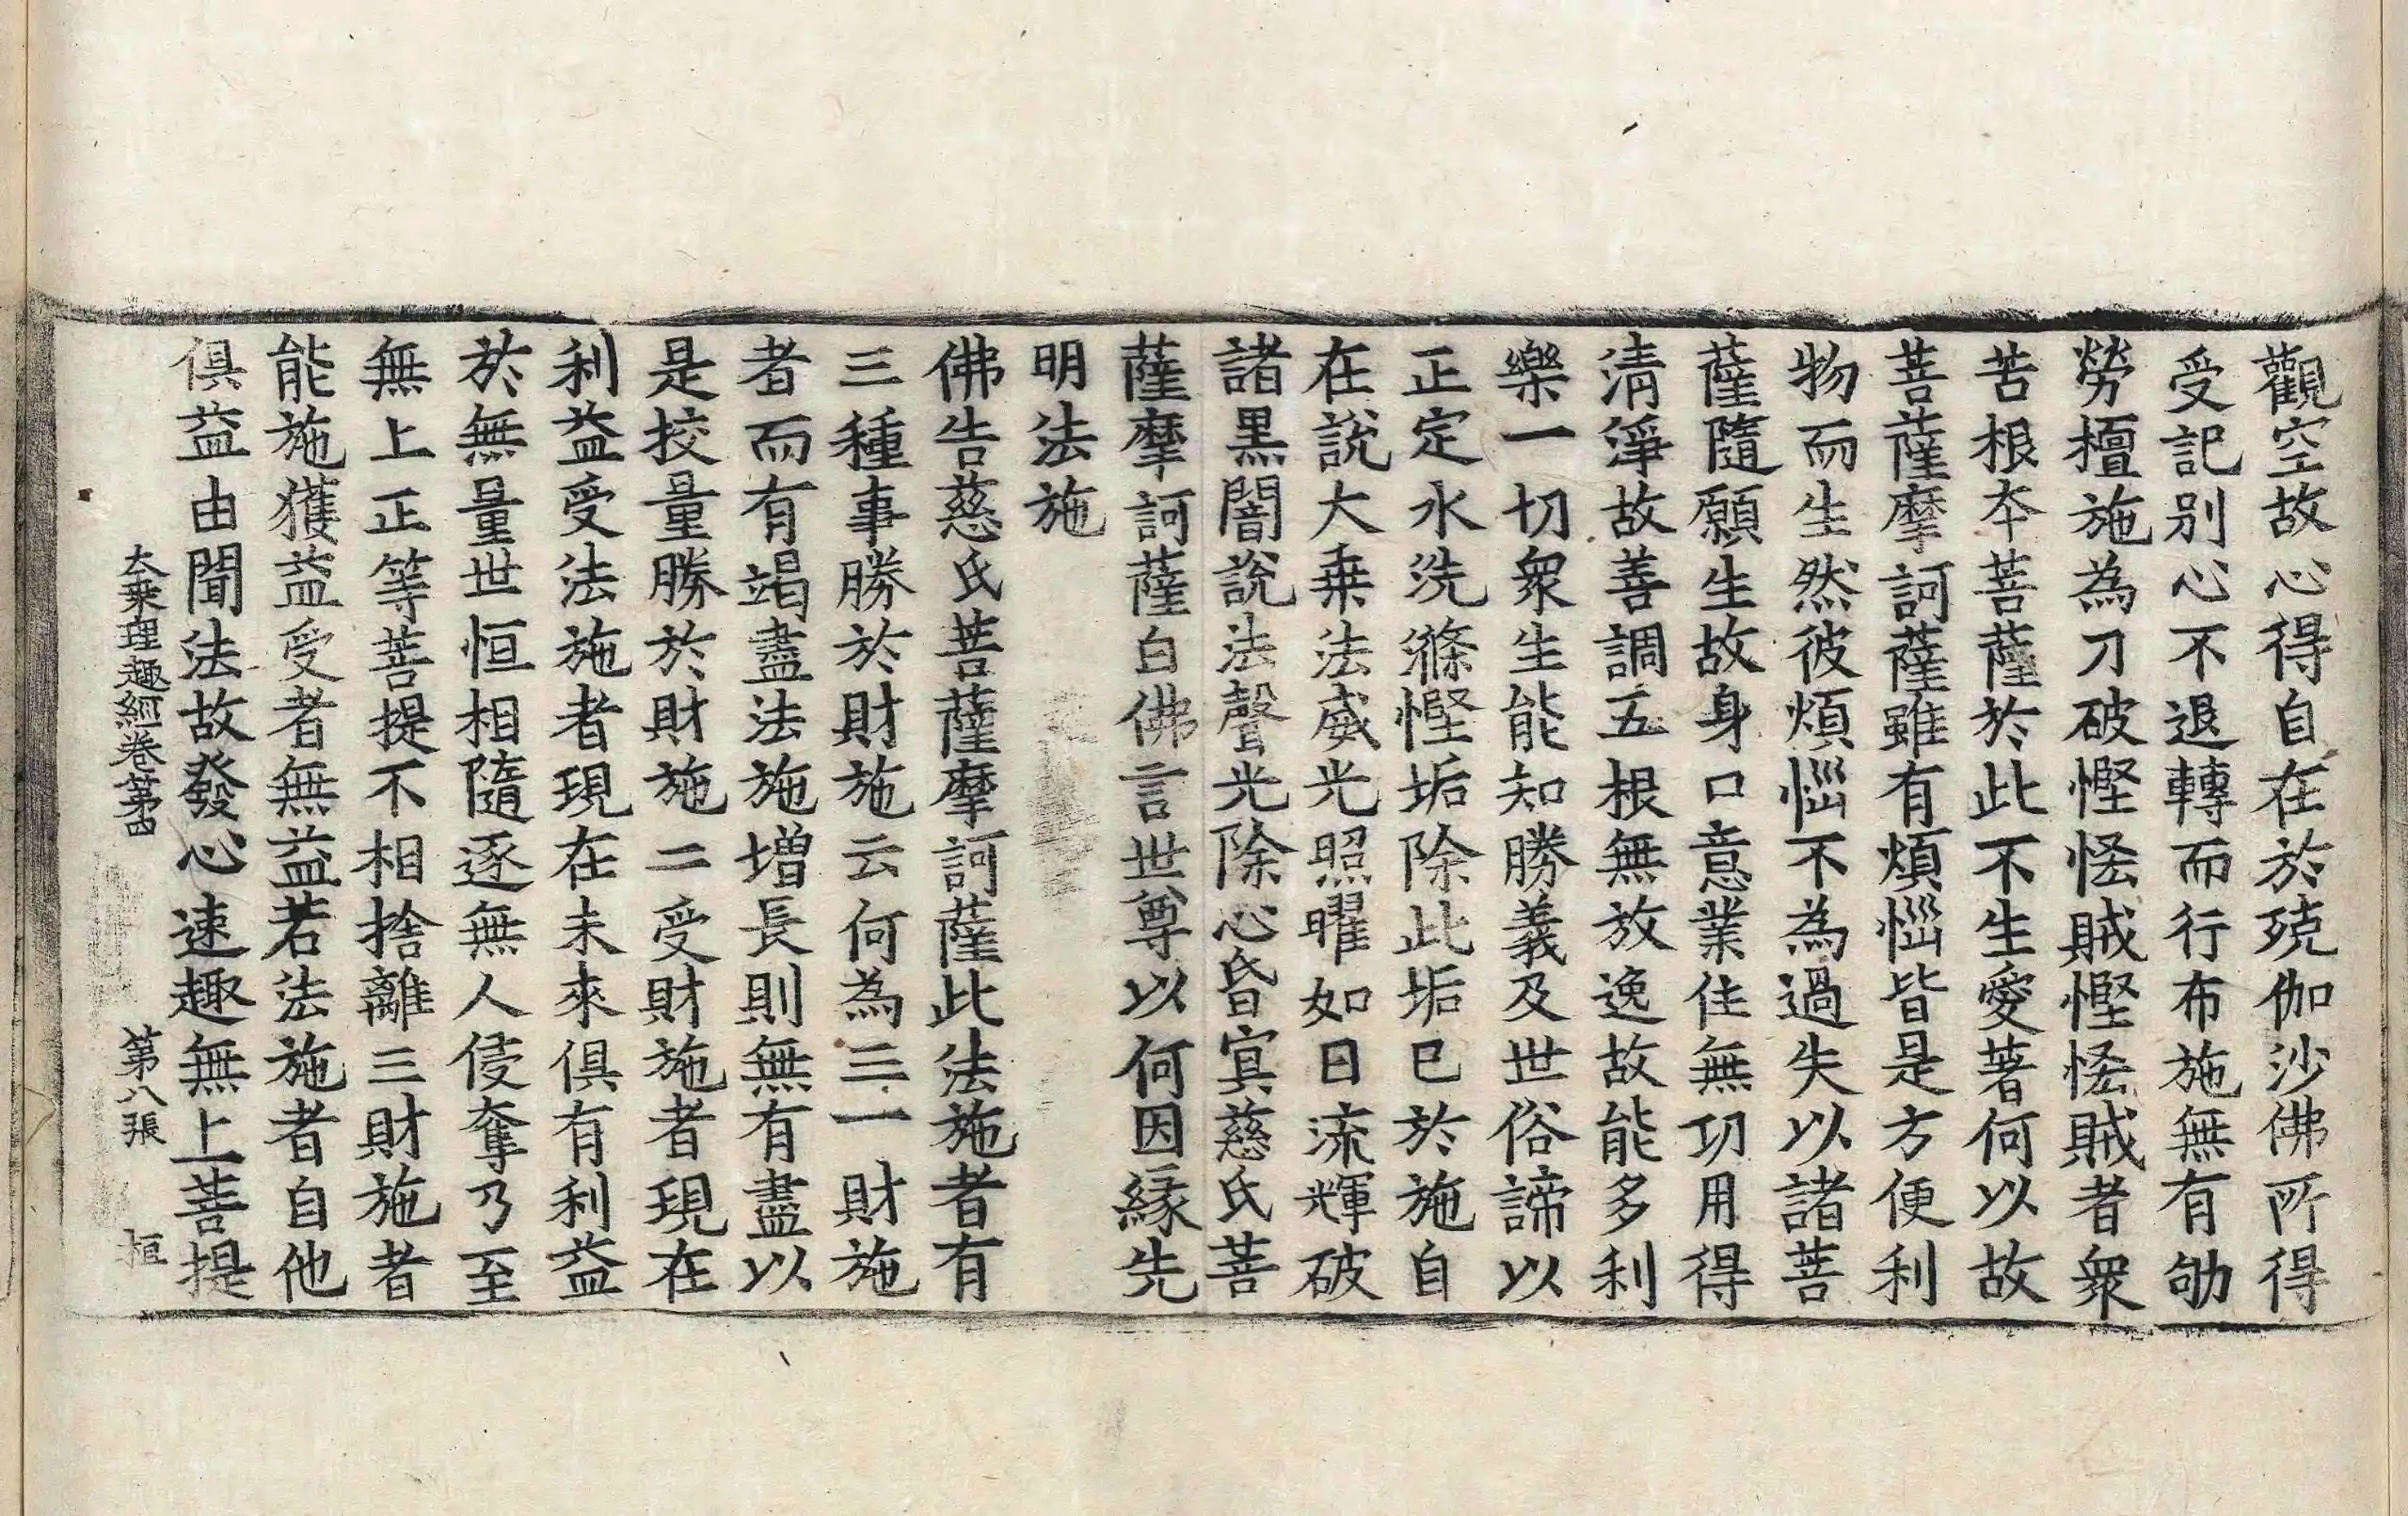 觀空故心得自在於殑伽沙佛所得
受記別心不退轉而行布施無有劬
勞檀施為刀破慳悋賊慳悋賊者衆
苦根夲菩薩於此不生愛著何以故
菩薩摩訶薩雖有煩惱皆是方便利
物而生然彼煩惱不為過失以諸菩
薩隨願生故身口意業住無功用得
清淨故善調五根無放逸故能多利
樂一切衆生能知勝義及世俗諦以
正定水洗滌慳垢除此垢已於施自
在說大乗法威光照曜如日流輝破
諸黒闇說法聲光除心昏冥慈氏菩
薩摩訶薩白佛言世尊以何因縁先
明法施
佛告慈氏菩薩摩訶薩此法施者有
三種事勝於財施云何為三一財施
者而有竭盡法施增長則無有盡以
是挍量勝於財施二受財施者現在
利益受法施者現在未來俱有利益
於無量世恒相隨逐無人侵奪乃至
無上正等菩提不相捨離三財施者
能施獲益受者無益若法施者自他
俱益由聞法故發心速趣無上菩提
大乗理趣經卷第四　第八張　桓